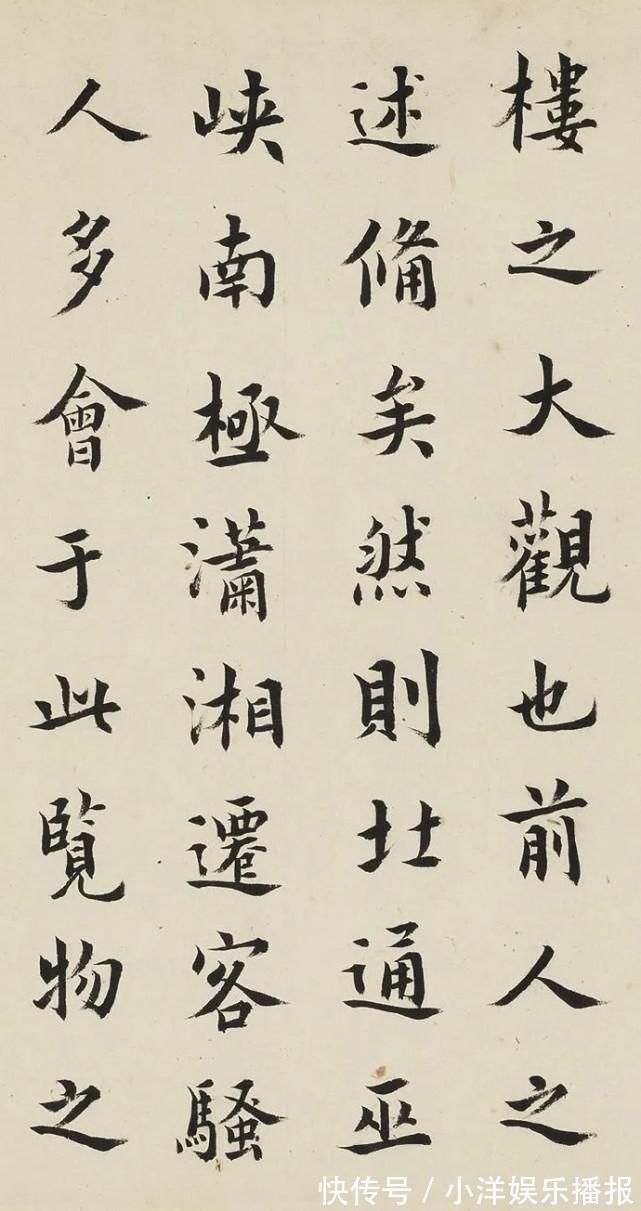 樓之大觀也前人之
述俻矣然則北通巫
峽南極瀟湘遷客騷
人多會于此覽物之
快传号/小洋娱乐播报